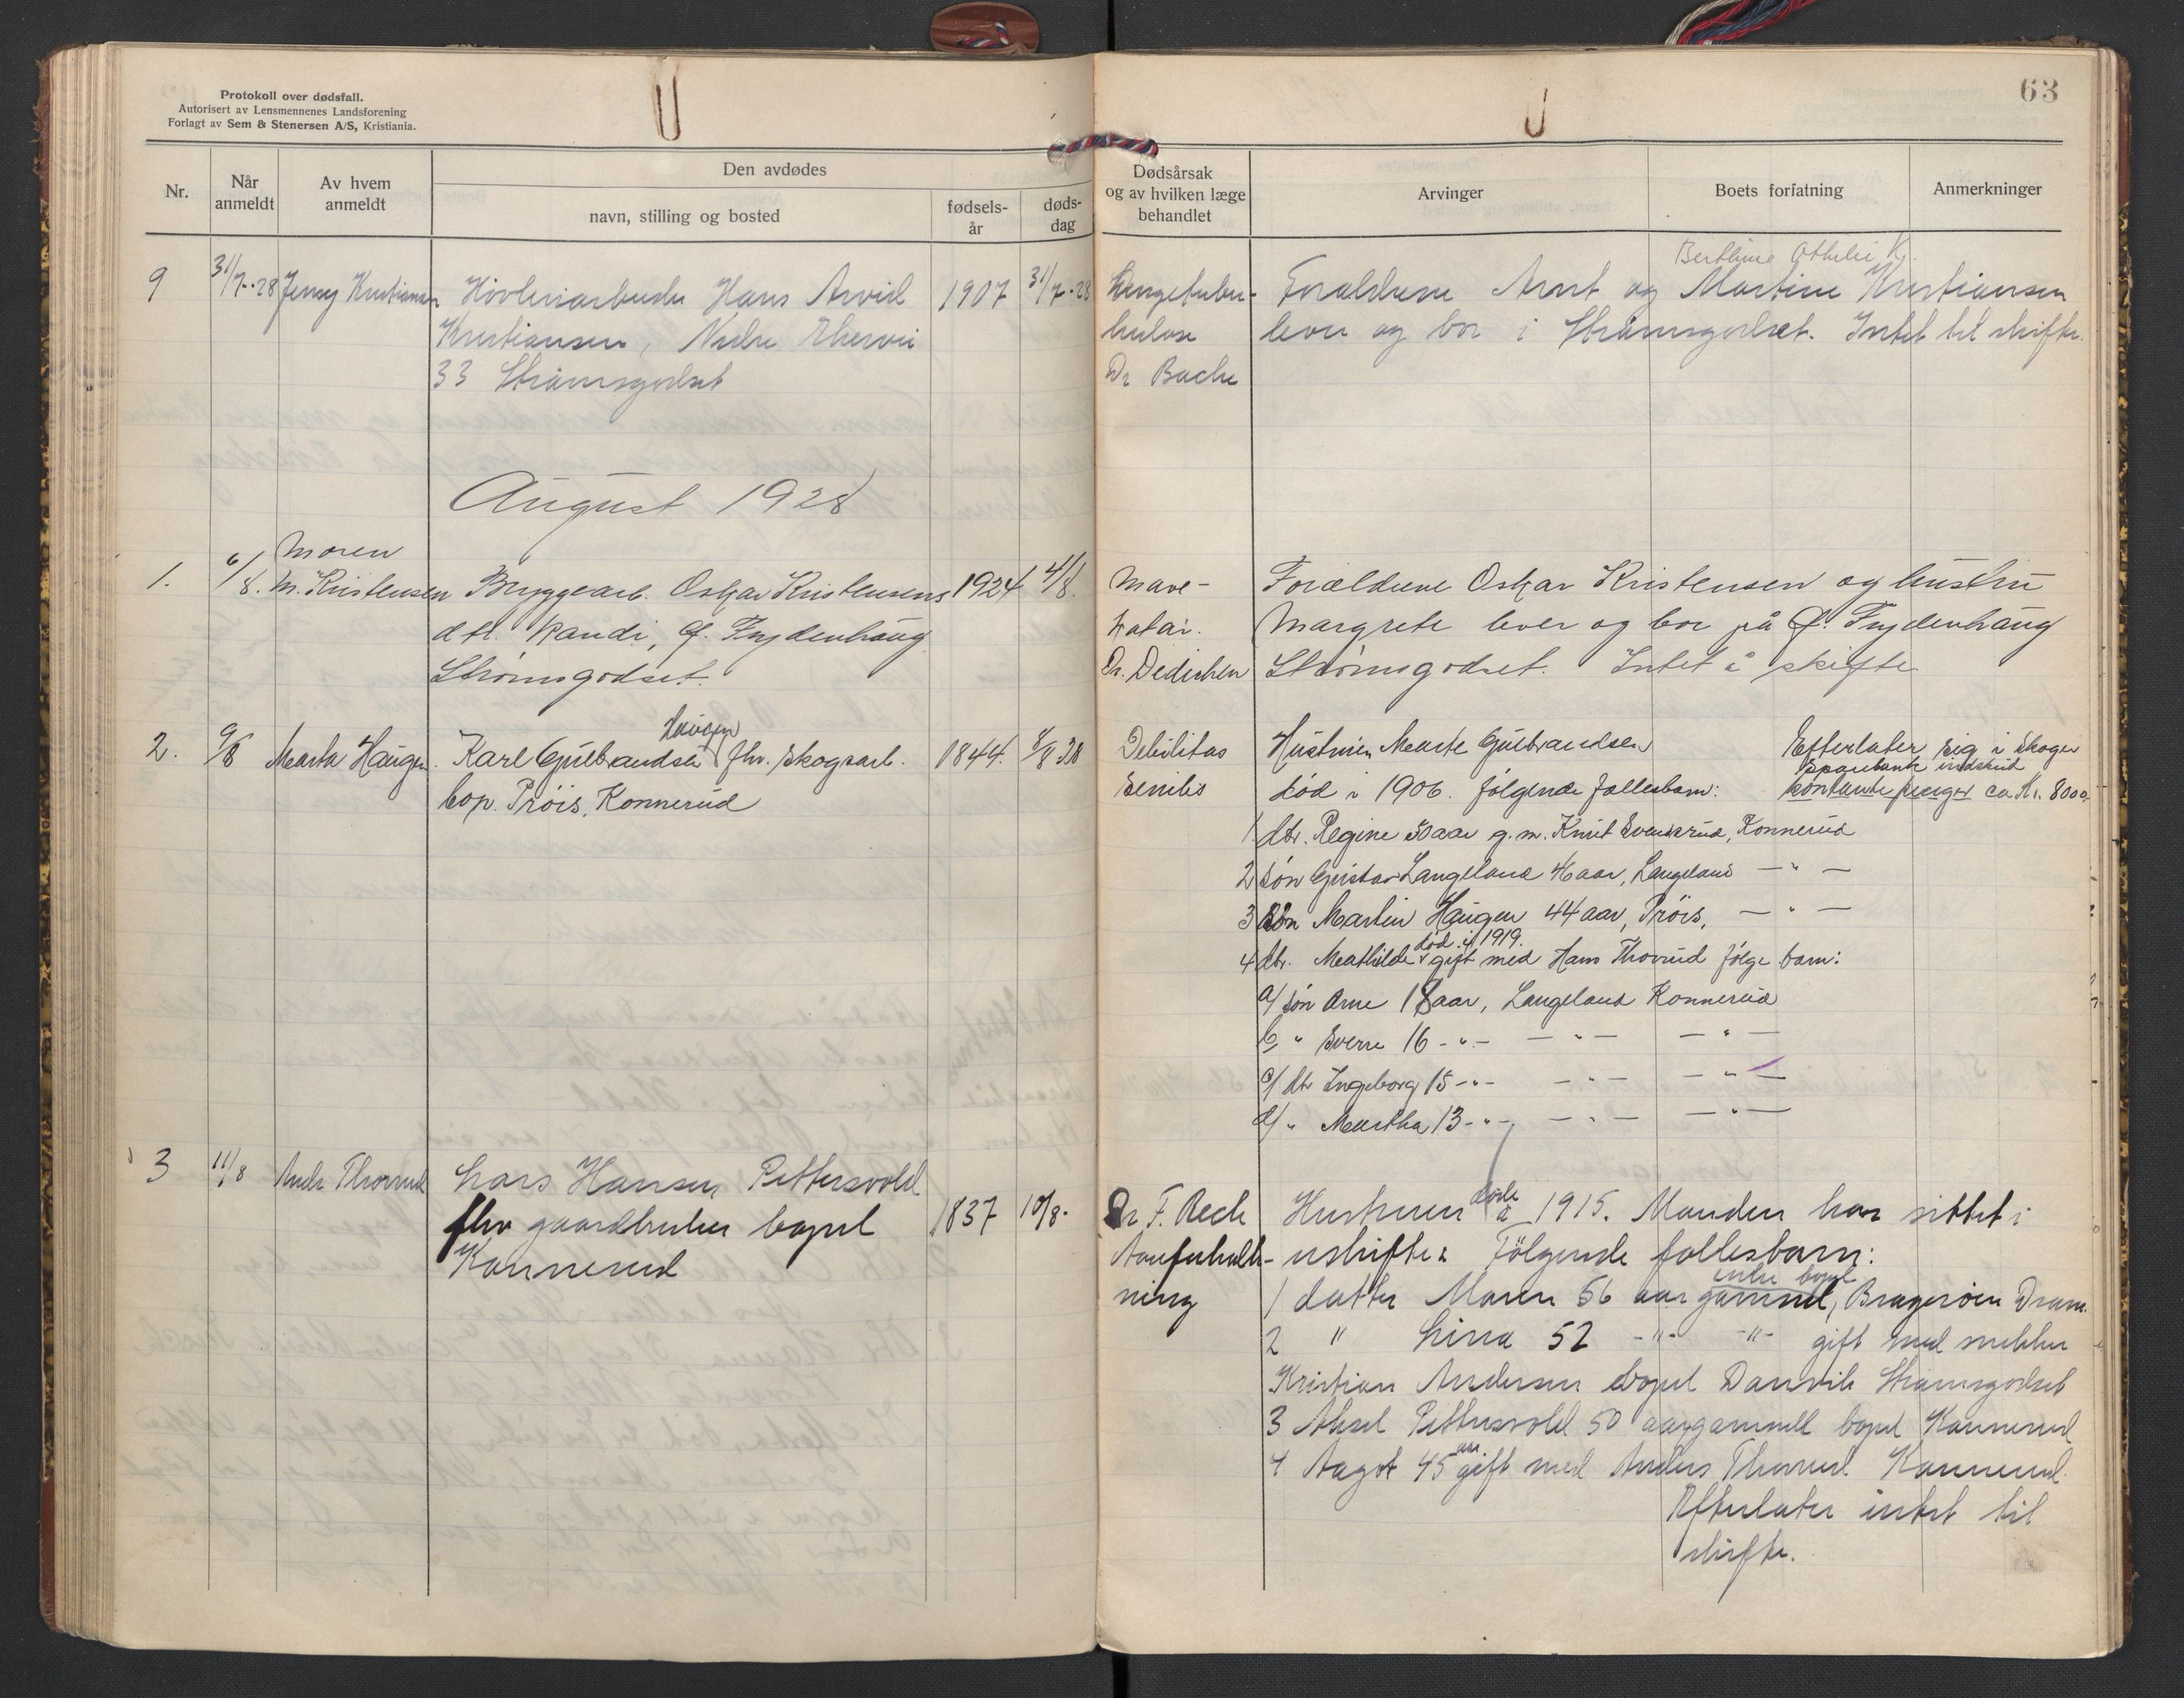 Protokoll over dødsfall.
Autorisert av Lensmennenes Landsforening
Forlagt av Sem & Stenersen A/S, Kristiania.
63
Nr.
Når anmeldt
Av hvem anmeldt
Den avdødes
navn, stilling og bosted
fødsels-år
døds-dag
Dødsårsak og av hvilken læge behandlet
Arvinger
Boets forfatning
Anmerkninger
9
31/7.-28
Jenny Kristiansen
Høvleriarbeider Hans Arvid
Kristiansen, Nedre
33 Strømsgodset
1907
31/7-28
Lungetuber-
kulose
Dr Bache
Berthine Othelie K.
Forældrene Arnt og Martine Kristiansen
lever og bor i Strømsgodset. Intet til skifte.
August 1928
1.
6/8.
Moren
M. Kristensen
Bryggearb. Oskar Kristensens
dtt. Randi, Frydenhaug
Strømsgodset.
1924
4/8.
Mave-
katar.
Dr. Dedichen
Forældrene Oskar Kristensen og hustru
Margrete lever og bor på Frydenhaug
Strømsgodset. Intet å skifte
2.
9/8
Marta Haugen.
Haugen
Karl Gulbrandsen fhv. skogsarb.
bop. Prøis, Konnerud
1844.
8/8 28
Debilitas
senilis
Hustruen Marte Gulbrandsen
død i 1906. følgende fællesbarn:
Efterlater sig i Skoger
Sparebank indskud
kontante penger ca Kr. 8000,-
1 dtr. Regine 50 aar g. m. Knut Svensrud, Konnerud
2 søn Gustav Langeland 46 aar, Langeland — " —
3 søn Martin Haugen 44 aar, Prøis, — " —
død i 1919.
4 dtr. Mathilde gift med Hans Thorrud følge barn:
a/ søn Arne 18 aar, Langeland Konnerud
b/ " Sverre 16 - " - — " — — " —
c/ dtr Ingeborg 15 - " - — " — — " —
d/ " Martha 13 - " - — " — — " —
3
11/8
Andr. Thorrud
Lars Hansen Pettersvold
fhv gaardbruker bopel
Konnerud
1837
10/8.
Dr F. Rech
Aareforkalk-
ning
Hustruen døde i 1915. Manden har sittet i
uskifte. Følgende fællesbarn:
enke bopel
1 datter Maren 56 aar gammel, Bragerøen Dram.
2 " Lina 52 -"- -"- gift med snekker
Kristian Andersen bopel Danvik Strømsgodset
3 Aksel Pettersvold 50 aar gammell bopel Konnerud
aar
4 Aagot 45 gift med Anders Thorrud Konnerud.
Efterlater intet til
skifte.